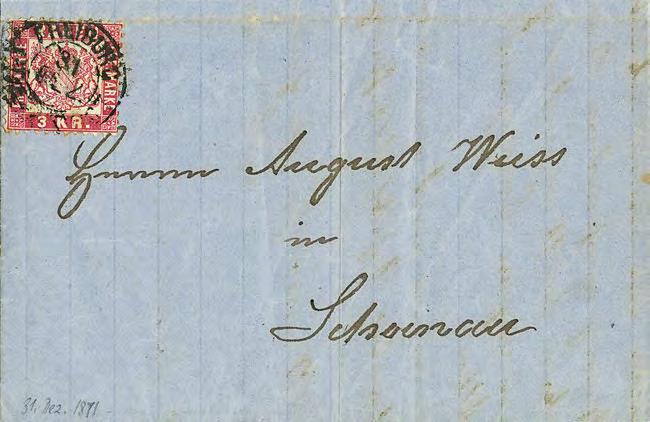 FREIBURG
MARKE
3 KR.
Herrn August Weiss
in
Schoenau
31. Dez. 1871